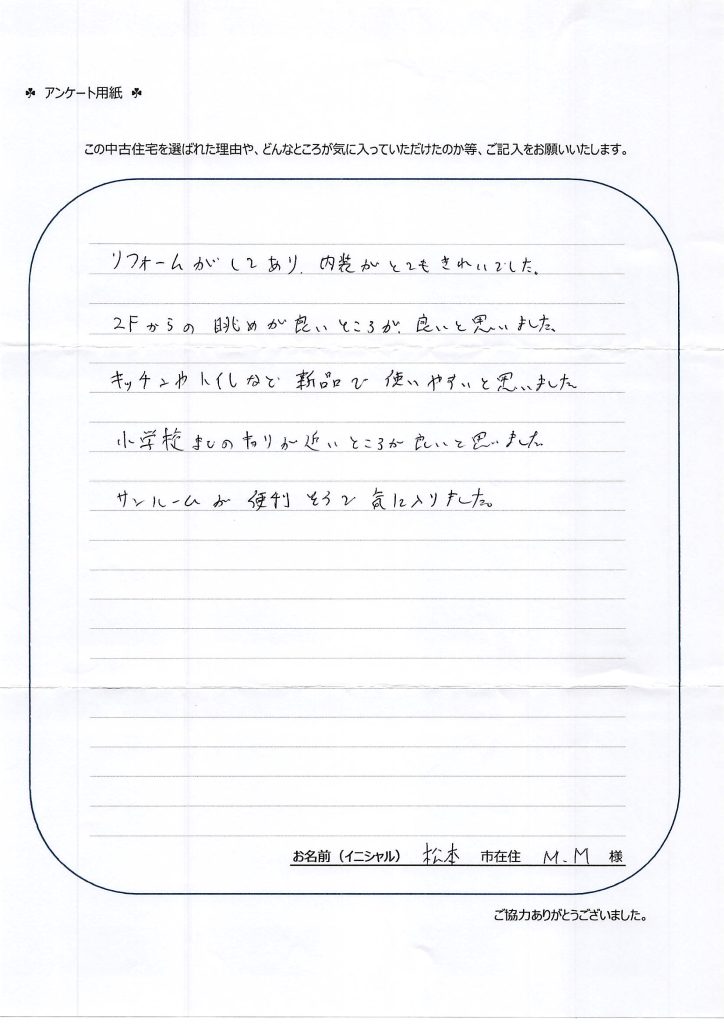 ☘ アンケート用紙 ☘
この中古住宅を選ばれた理由や、どんなところが気に入っていただけたのか等、ご記入をお願いいたします。
リフォームがしてあり、内装がとてもきれいでした。
2Fからの眺めが良いところが、良いと思いました。
キッチンやトイレなど新品で使いやすいと思いました
小学校までのキョリが近いところが良いと思いました
サンルームが便利そうで気に入りました。
お名前（イニシャル） 松本 市在住 M.M 様
ご協力ありがとうございました。